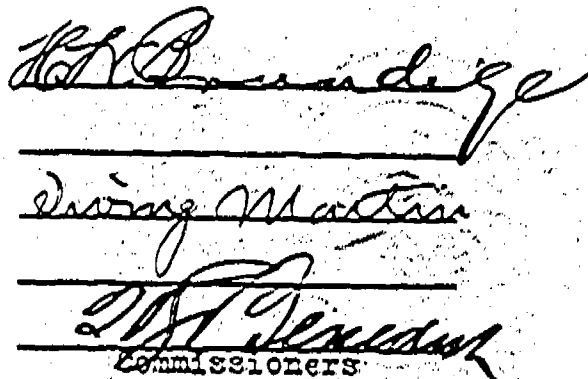 H. L. Brundige
Irving Martin
Commissioners